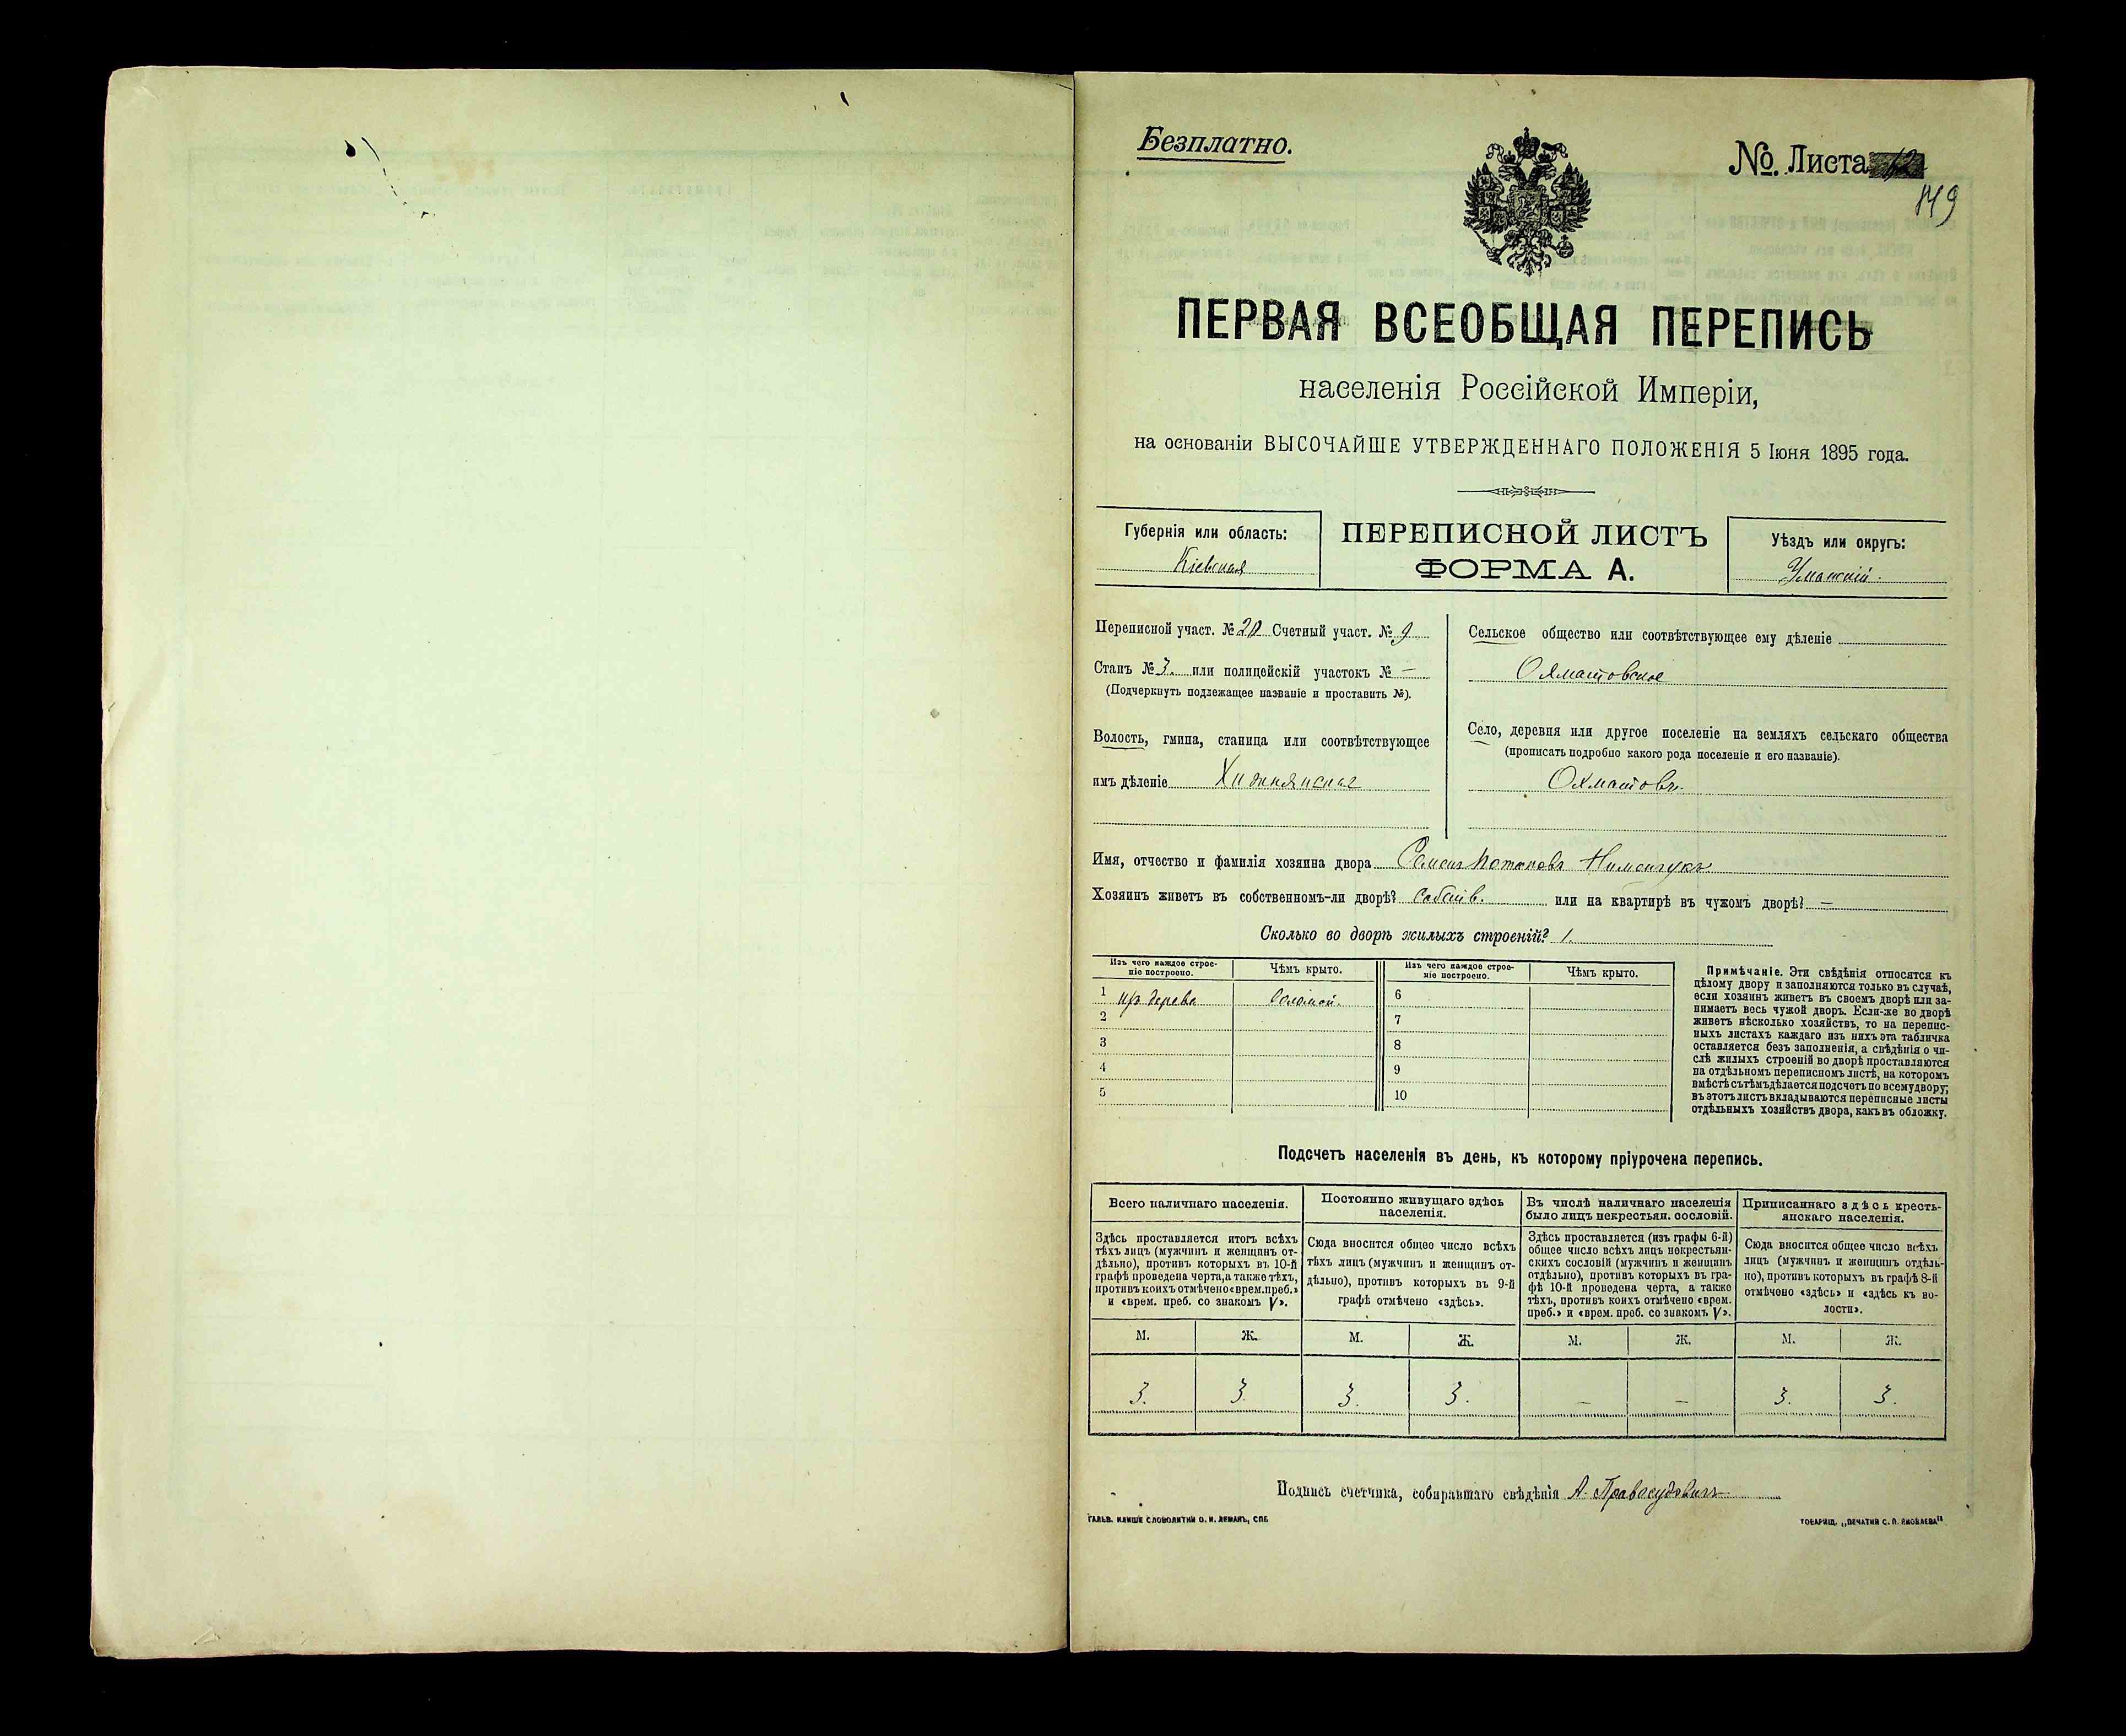 Безплатно.
№. Листа
149
ПЕРВАЯ ВСЕОБЩАЯ ПЕРЕПИСЬ
населенія Россійской Имперіи,
на основаніи ВЫСОЧАЙШЕ УТВЕРЖДЕННАГО ПОЛОЖЕНІЯ 5 Іюня 1895 года.
Губернія или область:
Кіевская
ПЕРЕПИСНОЙ ЛИСТЪ
ФОРМА А.
Уѣздъ или округъ:
Уманскій.
Переписной участ. № 20 Счетный участ. № 9
Станъ № 3. или полицейскій участокъ № —
(Подчеркнуть подлежащее названіе и проставить №).
Волость, гмина, станица или соотвѣтствующее
имъ дѣленіе Хижнянская
Сельское общество или соотвѣтствующее ему дѣленіе
Охматовское
Село, деревня или другое поселеніе на земляхъ сельскаго общества
(прописать подробно какого рода поселеніе и его названіе).
Охматовъ.
Имя, отчество и фамилія хозяина двора Семенъ Потаповъ
Хозяинъ живетъ въ собственномъ-ли дворѣ? собств. или на квартирѣ въ чужомъ дворѣ? —
Сколько во дворѣ жилыхъ строеній? 1.
Изъ чего каждое строе-
ніе построено.
Чѣмъ крыто.
1 изъ дерева
соломой.
2
3
4
5
Изъ чего каждое строе-
ніе построено.
Чѣмъ крыто.
6
7
8
9
10
Примѣчаніе. Эти свѣдѣнія относятся къ
цѣлому двору и заполняются только въ случаѣ,
если хозяинъ живетъ въ своемъ дворѣ или за-
нимаетъ весь чужой дворъ. Если-же во дворѣ
живетъ нѣсколько хозяйствъ, то на перепис-
ныхъ листахъ каждаго изъ нихъ эта табличка
оставляется безъ заполненія, а свѣдѣнія о чи-
слѣ жилыхъ строеній во дворѣ проставляются
на отдѣльномъ переписномъ листѣ, на которомъ
вмѣстѣ съ тѣмъ дѣлается подсчетъ по всему двору;
въ этотъ листъ вкладываются переписные листы
отдѣльныхъ хозяйствъ двора, какъ въ обложку.
Подсчетъ населенія въ день, къ которому пріурочена перепись.
Всего наличнаго населенія.
Здѣсь проставляется итогъ всѣхъ
тѣхъ лицъ (мужчинъ и женщинъ от-
дѣльно), противъ которыхъ въ 10-й
графѣ проведена черта, а также тѣхъ,
противъ коихъ отмѣчено «врем. преб.»
и «врем. преб. со знакомъ V».
М. Ж.
3. 3.
Постоянно живущаго здѣсь
населенія.
Сюда вносится общее число всѣхъ
тѣхъ лицъ (мужчинъ и женщинъ от-
дѣльно), противъ которыхъ въ 9-й
графѣ отмѣчено «здѣсь».
М. Ж.
3. 3.
Въ числѣ наличнаго населенія
было лицъ некрестьян. сословій.
Здѣсь проставляется (изъ графы 6-й)
общее число всѣхъ лицъ некрестьян-
скихъ сословій (мужчинъ и женщинъ
отдѣльно), противъ которыхъ въ гра-
фѣ 10-й проведена черта, а также
тѣхъ, противъ коихъ отмѣчено «врем.
преб.» и «врем. преб. со знакомъ V».
М. Ж.
— —
Приписаннаго здѣсь кресть-
янскаго населенія.
Сюда вносится общее число всѣхъ
лицъ (мужчинъ и женщинъ отдѣль-
но), противъ которыхъ въ графѣ 8-й
отмѣчено «здѣсь» и «здѣсь къ во-
лости».
М. Ж.
3. 3.
Подпись счетчика, собиравшаго свѣдѣнія А. Правосудовичъ
ГАЛЬВ. КЛИШЕ СЛОВОЛИТНИ О. И. ЛЕМАНЪ, СПБ.
ТОВАРИЩ. „ПЕЧАТНЯ С. П. ЯКОВЛЕВА"